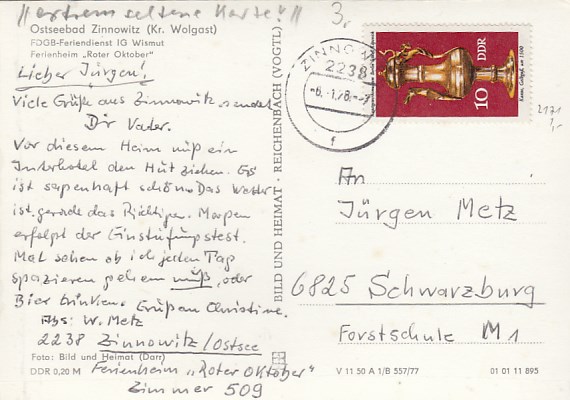 // extrem seltene Karte! //
3,-
Ostseebad Zinnowitz (Kr. Wolgast)
FDGB-Feriendienst IG Wismut
Ferienheim „Roter Oktober"
Lieber Jürgen!
Viele Grüße aus Zinnowitz sendet
Dir Vater.
Vor diesem Heim muß ein
Interhotel den Hut ziehen. Es
ist sagenhaft schön. Das Wetter
ist gerade das Richtige. Morgen
erfolgt der Einstufungstest.
Mal sehen ob ich jeden Tag
spazieren gehen muß, oder
Bier trinken. Grüße an Christine.
Abs: W. Metz
2238 Zinnowitz/Ostsee
Ferienheim „Roter Oktober"
Zimmer 509
Foto: Bild und Heimat (Darr)
DDR 0,20 M
BILD UND HEIMAT · REICHENBACH (VOGTL)
ZINNOW
2238
-6.-1.78.-7
f
DDR
10
2171
1,-
An
Jürgen Metz
6825 Schwarzburg
Forstschule M1
V 11 50 A 1/B 557/77
01 01 11 895